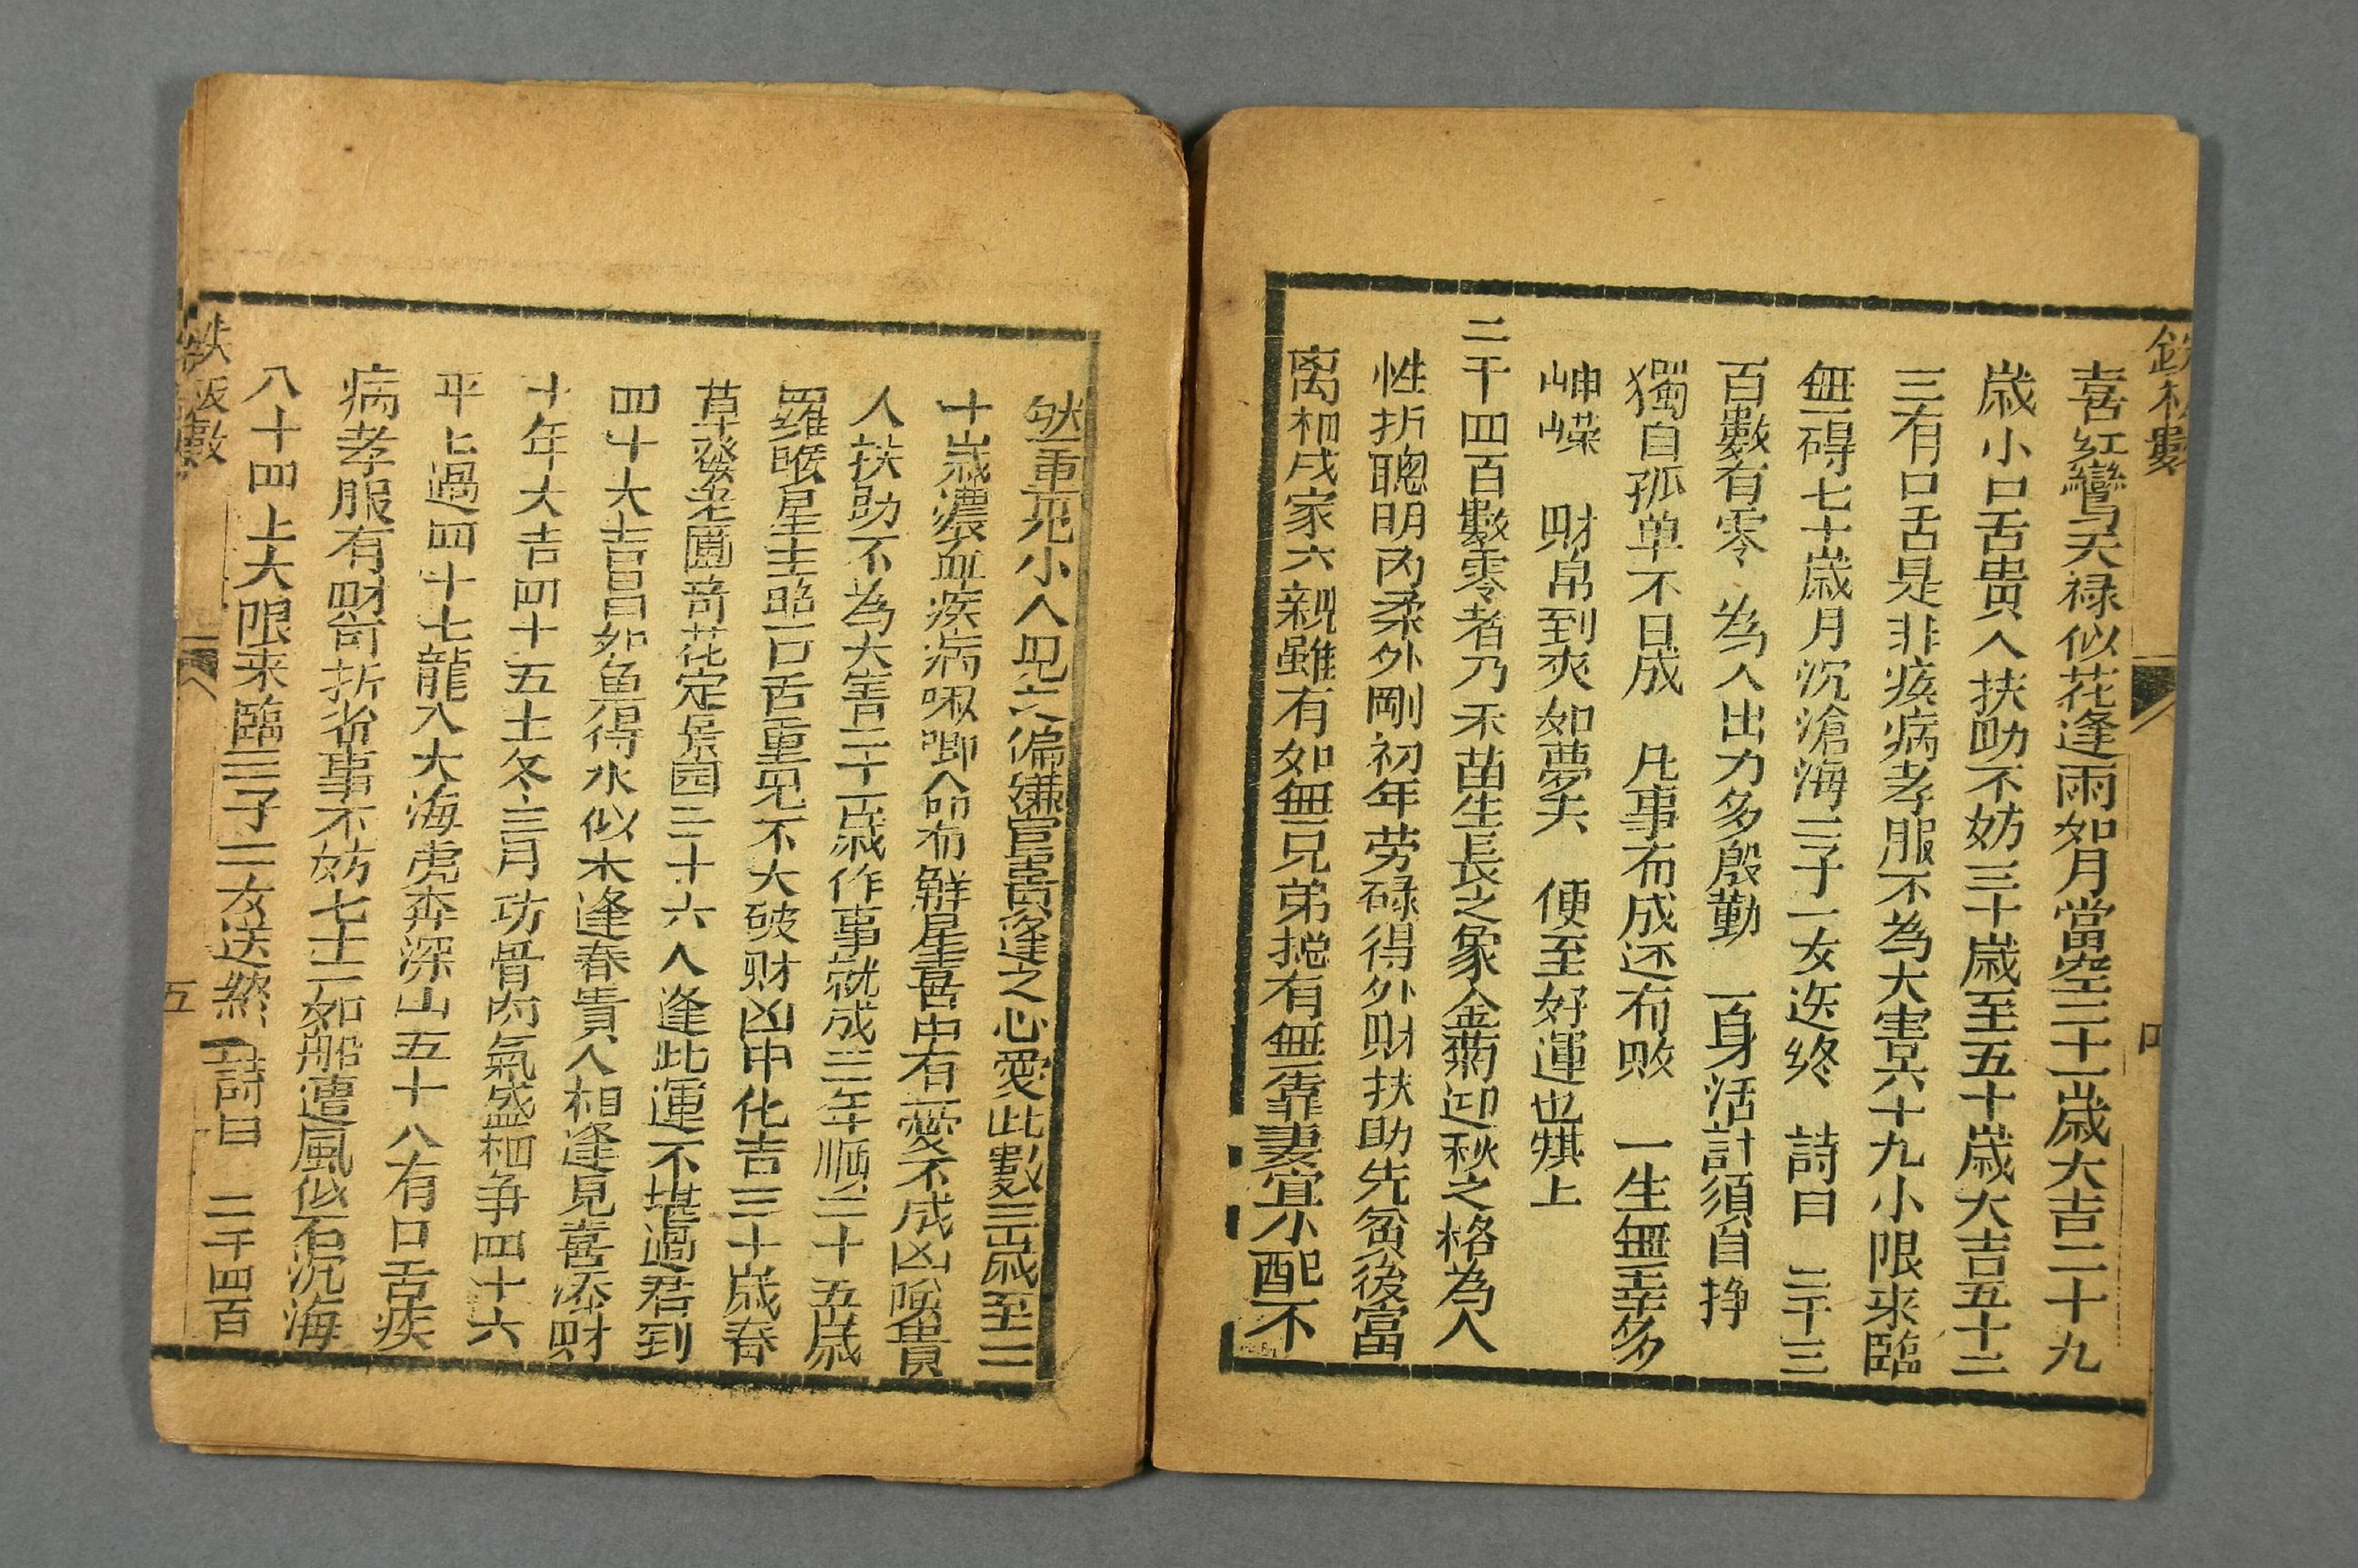 喜紅鸞天禄似花逢雨如月當空三十一歲大吉二十九
歲小口舌貴人扶助不妨三十歲至五十歲大吉五十二
三有口舌是非疾病孝服不為大害六十九小限來臨
無碍七十歲月沉滄海三子一女送終 詩曰 二千三
百數有零 為人出力多慇勤 一身活計須自掙
獨自孤单不日成 凡事有成还有败 一生無幸多
崢嶸 財帛到來如夢失 便至好運也 上
二千四百數零者乃禾苗生長之象金菊迎秋之格為人
性折聰明内柔外剛初年劳碌得外財扶助先貧後富
离祖戌家六親雖有如無兄弟摠有無靠妻宜小配不
然重见小人见亡偏嫌官貴逢之心愛此數三歲至二
十歲濃血疾病 命有鮮星喜中有憂不成凶喚貴
人扶助不為大害二十一歲作事就成三年順二十五歲
羅睺星主照口舌重见不大破财凶中化吉三十歲春
草發生圃奇花定長园三十六人逢此運不堪過君到
四十大吉昌如魚得水似木逢春貴人相逢見喜添財
十年大吉四十五十冬三月功骨肉氣盛相争四十六
平上過四十七龍入大海虎奔深山五十八有口舌疾
病孝服有财可折省事不妨七十二如船遭風似石沉海
八十四上大限来臨三子二女送然 詩曰 二千四百
鉄板數
五
四